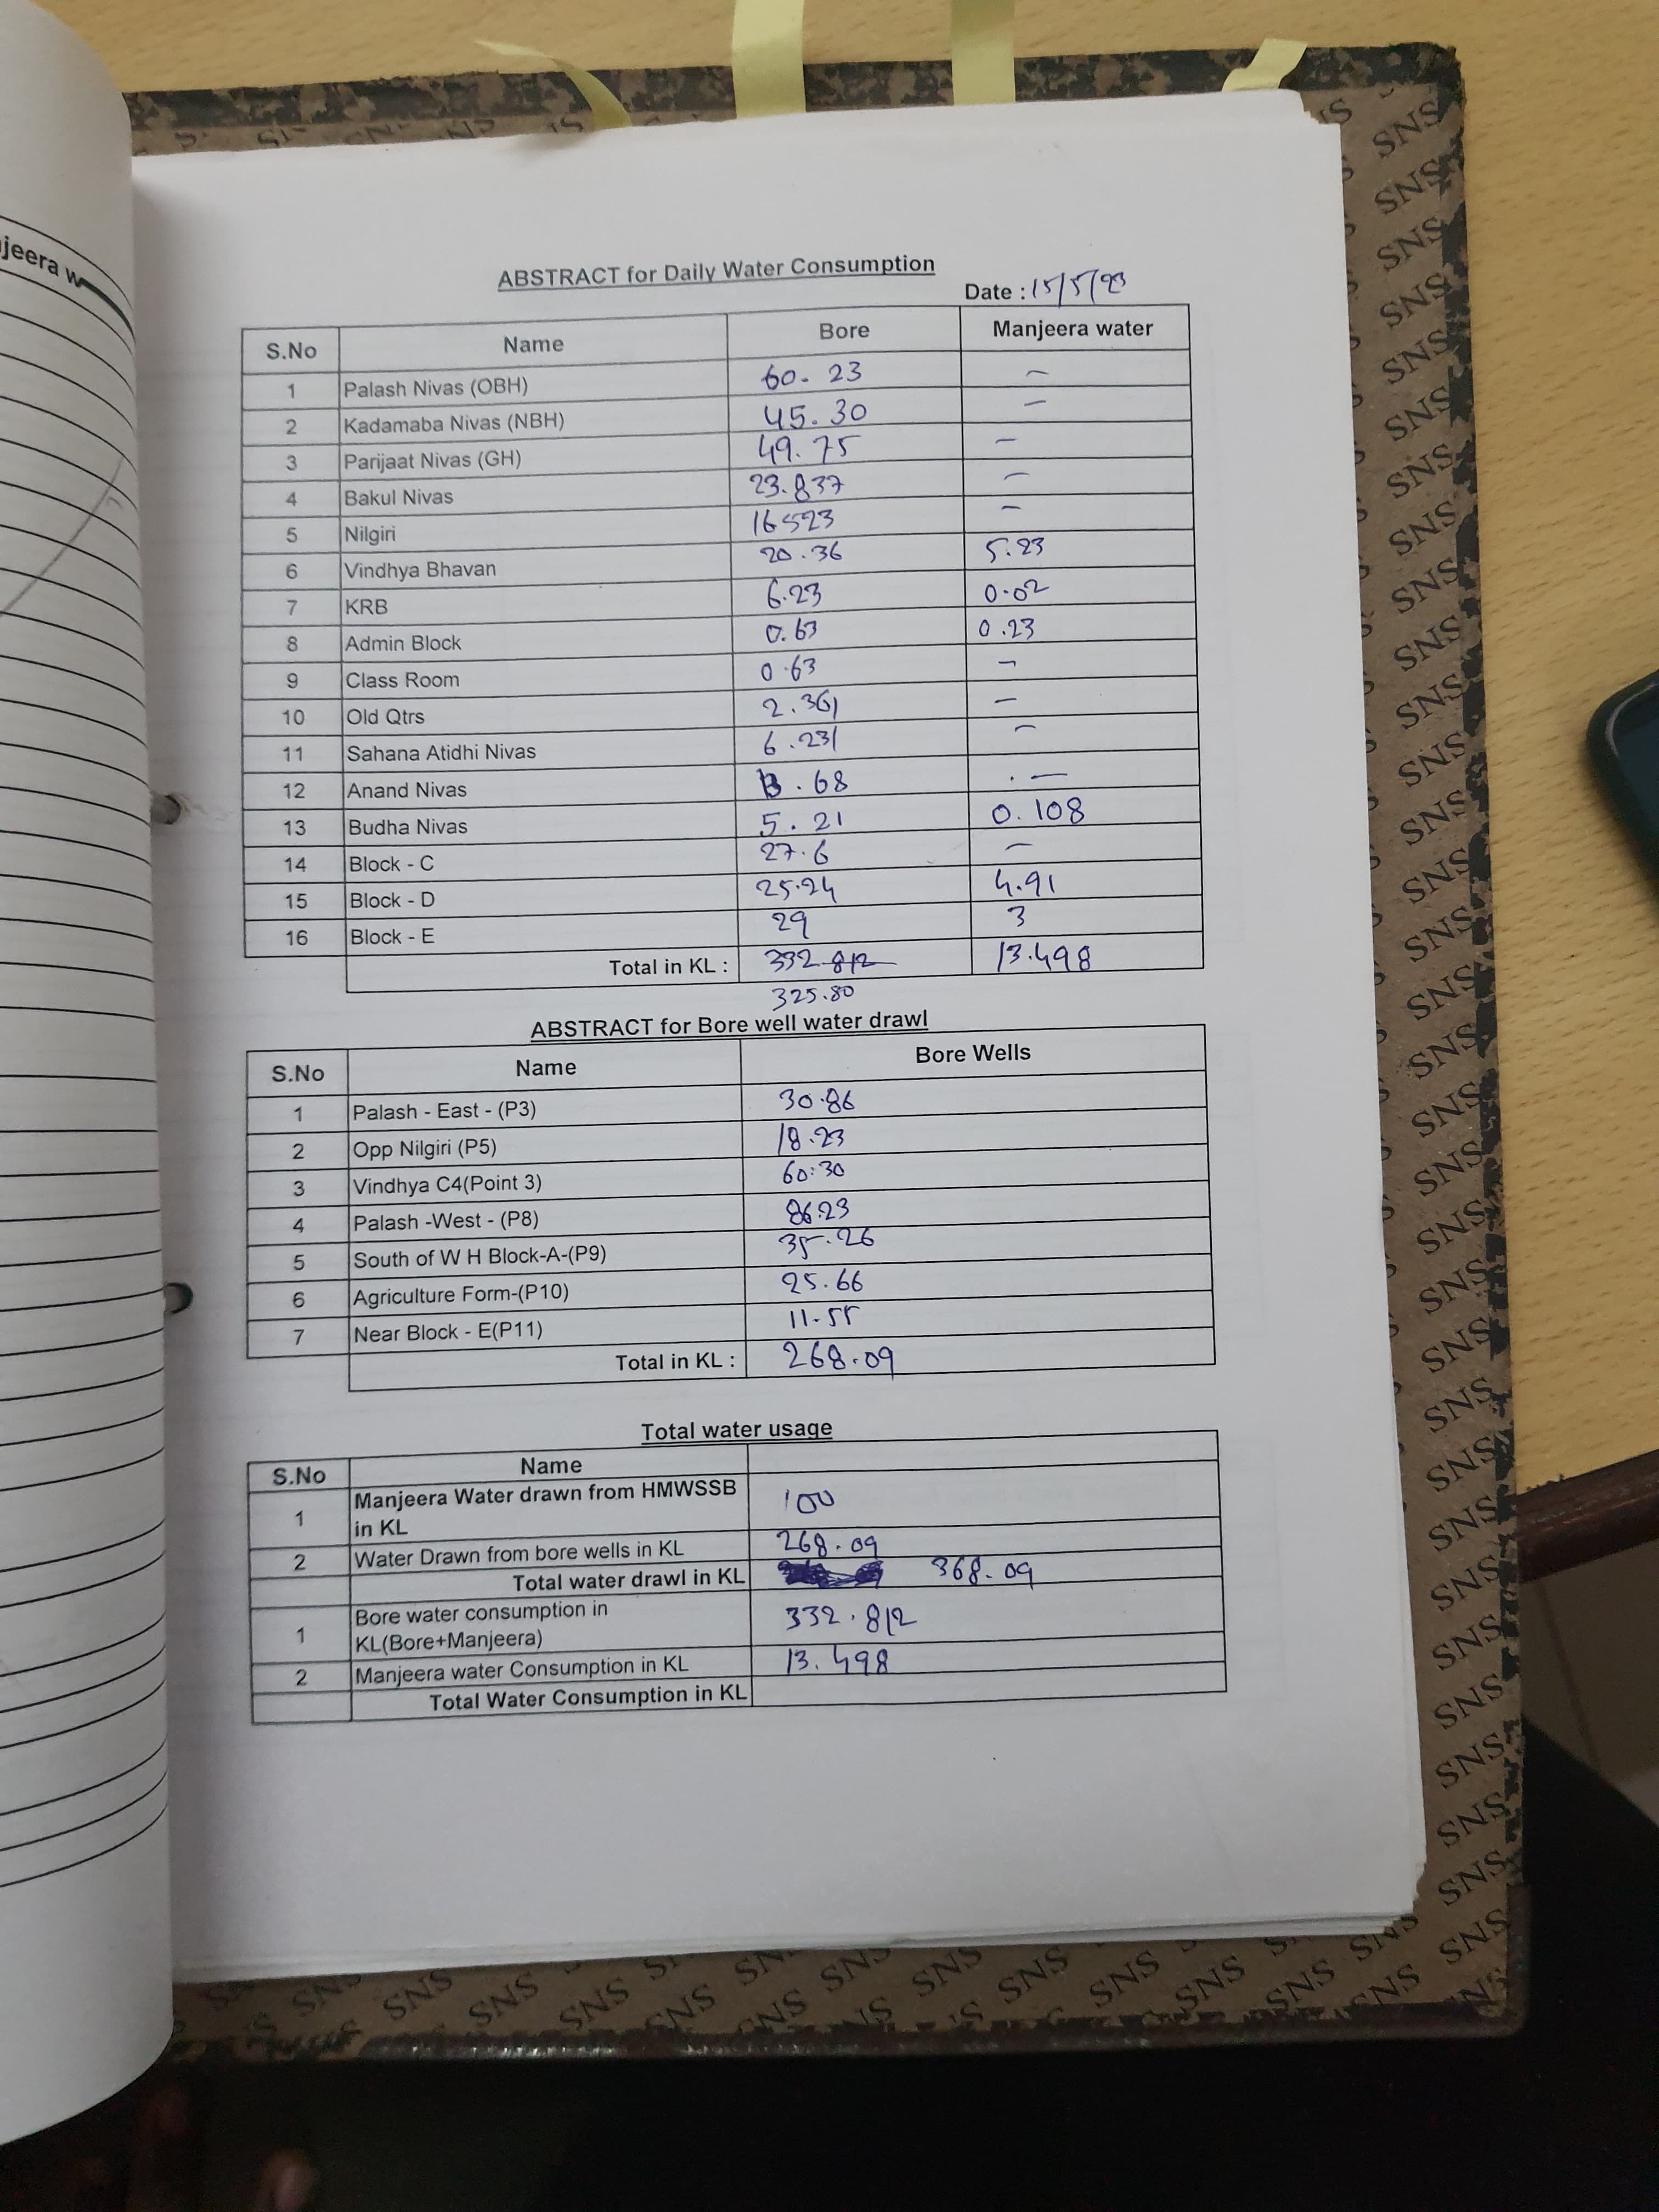 jeera w
ABSTRACT for Daily Water Consumption
Date : 15/5/23
S.No Name Bore Manjeera water
1 Palash Nivas (OBH) 60.23 -
2 Kadamaba Nivas (NBH) 45.30 -
3 Parijaat Nivas (GH) 49.75 -
4 Bakul Nivas 23.837 -
5 Nilgiri 16523 -
6 Vindhya Bhavan 20.36 5.23
7 KRB 6.23 0.02
8 Admin Block 0.63 0.23
9 Class Room 0.63 -
10 Old Qtrs 2.361 -
11 Sahana Atidhi Nivas 6.231 -
12 Anand Nivas .68 -
13 Budha Nivas 5.21 0.108
14 Block - C 27.6 -
15 Block - D 25.24 4.91
16 Block - E 29 3
Total in KL : 332.812 13.498
325.80
ABSTRACT for Bore well water drawl
S.No Name Bore Wells
1 Palash - East - (P3) 30.86
2 Opp Nilgiri (P5) 18.23
3 Vindhya C4(Point 3) 60.30
4 Palash -West - (P8) 86.23
5 South of W H Block-A-(P9) 35.26
6 Agriculture Form-(P10) 25.66
7 Near Block - E(P11) 11.55
Total in KL : 268.09
Total water usage
S.No Name
1 Manjeera Water drawn from HMWSSB
in KL 100
2 Water Drawn from bore wells in KL 268.09
Total water drawl in KL 368.09
1 Bore water consumption in
KL(Bore+Manjeera) 332.812
2 Manjeera water Consumption in KL 13.498
Total Water Consumption in KL
SNS